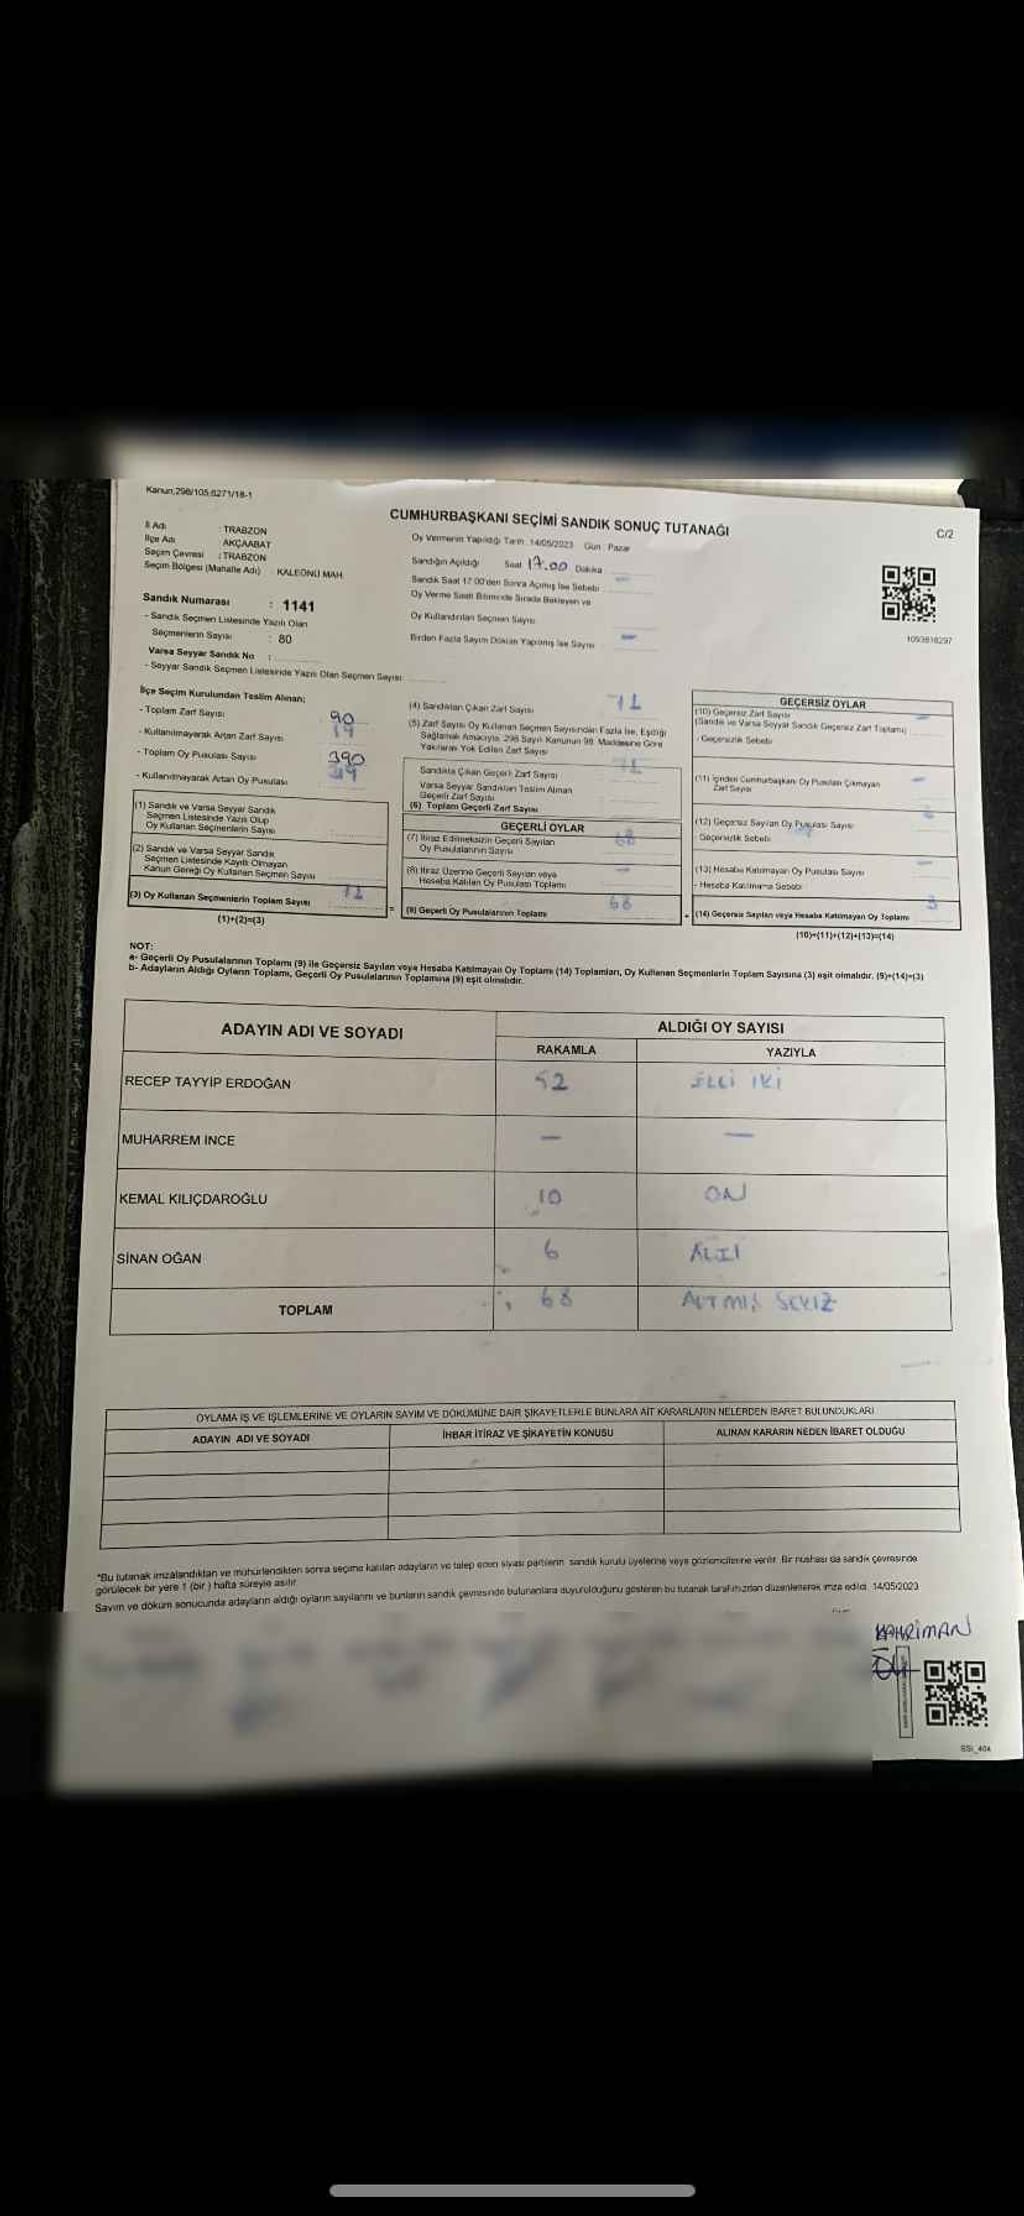 Kanun,298/105,6271/18-1
CUMHURBAŞKANI SEÇİMİ SANDIK SONUÇ TUTANAĞI
C/2
İl Adı : TRABZON
İlçe Adı : AKÇAABAT
Seçim Çevresi : TRABZON
Seçim Bölgesi (Mahalle Adı) : KALEÖNÜ MAH.
Sandık Numarası : 1141
- Sandık Seçmen Listesinde Yazılı Olan
Seçmenlerin Sayısı : 80
Varsa Seyyar Sandık No :
- Seyyar Sandık Seçmen Listesinde Yazılı Olan Seçmen Sayısı:
Oy Vermenin Yapıldığı Tarih : 14/05/2023 Gün : Pazar
Sandığın Açıldığı Saat 17.00 Dakika
Sandık Saat 17.00'den Sonra Açılmış İse Sebebi: -
Oy Verme Saati Bitiminde Sırada Bekleyen ve
Oy Kullandırılan Seçmen Sayısı
Birden Fazla Sayım Döküm Yapılmış İse Sayısı -
1093818297
İlçe Seçim Kurulundan Teslim Alınan;
- Toplam Zarf Sayısı 90
- Kullanılmayarak Artan Zarf Sayısı 19
- Toplam Oy Pusulası Sayısı 390
- Kullanılmayarak Artan Oy Pusulası
(1) Sandık ve Varsa Seyyar Sandık
Seçmen Listesinde Yazılı Olup
Oy Kullanan Seçmenlerin Sayısı
(2) Sandık ve Varsa Seyyar Sandık
Seçmen Listesinde Kayıtlı Olmayan
Kanun Gereği Oy Kullanan Seçmen Sayısı
(3) Oy Kullanan Seçmenlerin Toplam Sayısı
(1)+(2)=(3)
(4) Sandıktan Çıkan Zarf Sayısı 71
(5) Zarf Sayısı Oy Kullanan Seçmen Sayısından Fazla İse, Eşitliği
Sağlamak Amacıyla, 298 Sayılı Kanunun 98. Maddesine Göre
Yakılarak Yok Edilen Zarf Sayısı
Sandıkta Çıkan Geçerli Zarf Sayısı 71
Varsa Seyyar Sandıktan Teslim Alınan
Geçerli Zarf Sayısı
(6). Toplam Geçerli Zarf Sayısı
GEÇERLİ OYLAR
(7) İtiraz Edilmeksizin Geçerli Sayılan
Oy Pusulalarının Sayısı 68
(8) İtiraz Üzerine Geçerli Sayılan veya
Hesaba Katılan Oy Pusulası Toplamı -
(9) Geçerli Oy Pusulalarının Toplamı 68
GEÇERSİZ OYLAR
(10) Geçersiz Zarf Sayısı
(Sandık ve Varsa Seyyar Sandık Geçersiz Zarf Toplamı) -
- Geçersizlik Sebebi
(11) İçinden Cumhurbaşkanı Oy Pusulası Çıkmayan
Zarf Sayısı -
(12) Geçersiz Sayılan Oy Pusulası Sayısı
- Geçersizlik Sebebi
(13) Hesaba Katılmayan Oy Pusulası Sayısı -
- Hesaba Katılmama Sebebi
(14) Geçersiz Sayılan veya Hesaba Katılmayan Oy Toplamı 3
(10)+(11)+(12)+(13)=(14)
NOT:
a- Geçerli Oy Pusulalarının Toplamı (9) ile Geçersiz Sayılan veya Hesaba Katılmayan Oy Toplamı (14) Toplamları, Oy Kullanan Seçmenlerin Toplam Sayısına (3) eşit olmalıdır. (9)+(14)=(3)
b- Adayların Aldığı Oyların Toplamı, Geçerli Oy Pusulalarının Toplamına (9) eşit olmalıdır.
ADAYIN ADI VE SOYADI ALDIĞI OY SAYISI
RAKAMLA YAZIYLA
RECEP TAYYİP ERDOĞAN 52 ELLİ İKİ
MUHARREM İNCE - -
KEMAL KILIÇDAROĞLU 10 ON
SİNAN OĞAN 6 ALTI
TOPLAM 68 ALTMIŞ SEKİZ
OYLAMA İŞ VE İŞLEMLERİNE VE OYLARIN SAYIM VE DÖKÜMÜNE DAİR ŞİKAYETLERLE BUNLARA AİT KARARLARIN NELERDEN İBARET BULUNDUKLARI
ADAYIN ADI VE SOYADI İHBAR İTİRAZ VE ŞİKAYETİN KONUSU ALINAN KARARIN NEDEN İBARET OLDUĞU
*Bu tutanak imzalandıktan ve mühürlendikten sonra seçime katılan adayların ve talep eden siyasi partilerin sandık kurulu üyelerine veya gözlemcilerine verilir. Bir nüshası da sandık çevresinde
görülecek bir yere 1 (bir) hafta süreyle asılır.
Sayım ve döküm sonucunda adayların aldığı oyların sayılarını ve bunların sandık çevresinde bulunanlara duyurulduğunu gösteren bu tutanak tarafımızdan düzenlenerek imza edildi. 14/05/2023
KAHRİMAN
SSI_404